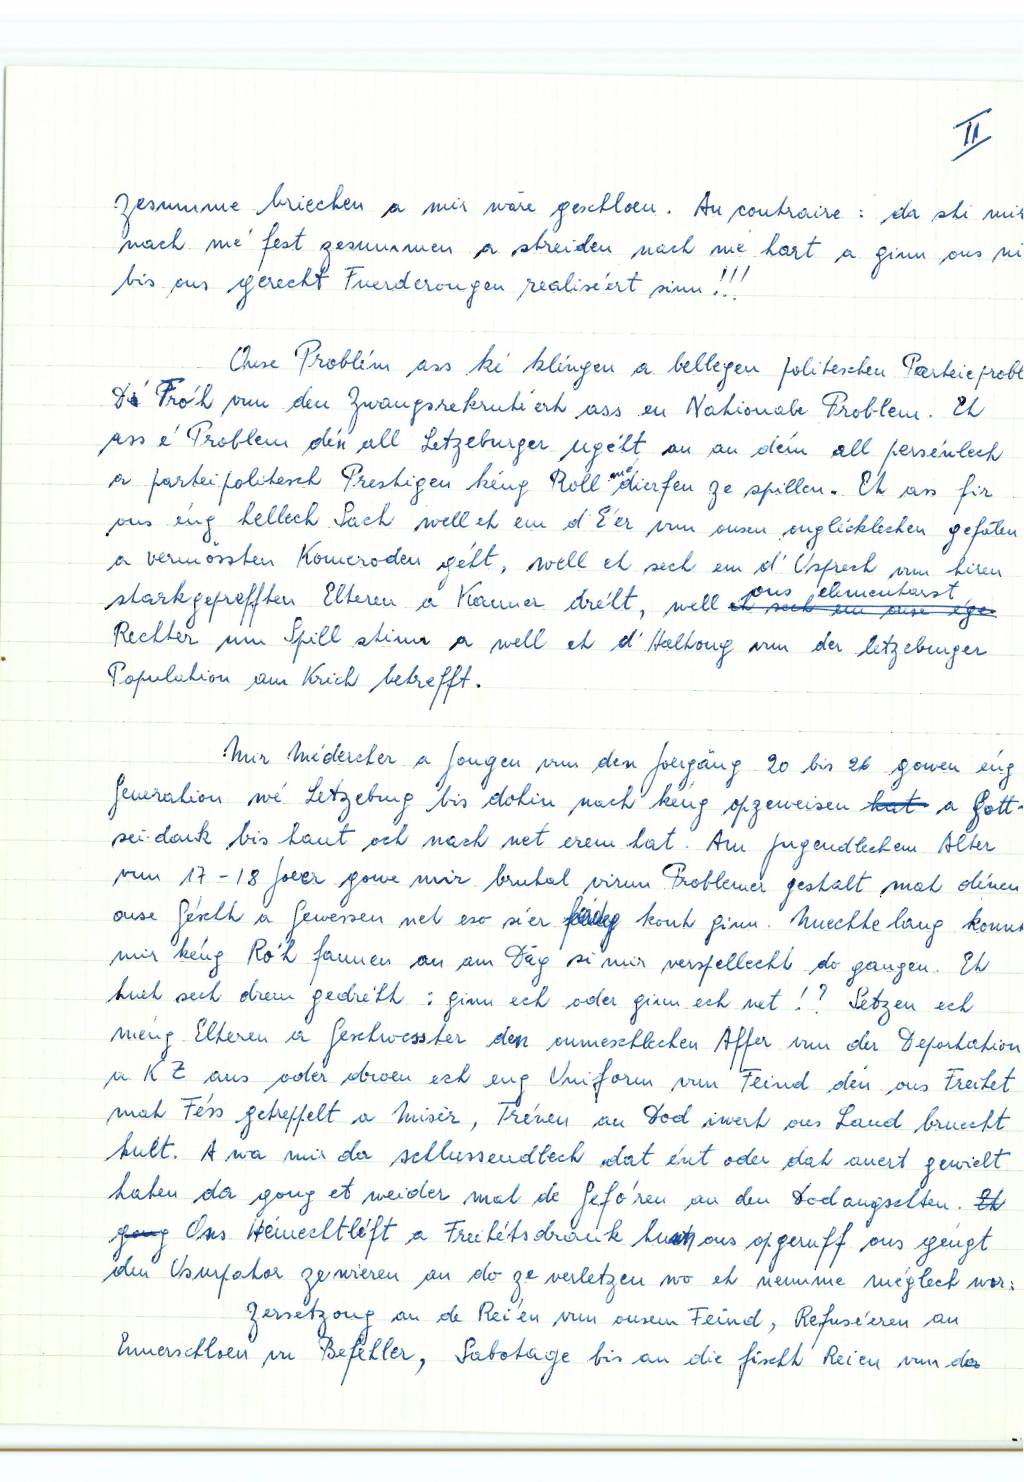 II
zesumme briechen a mir wäre geschloen. Au contraire : da sti mir
nach mé fest zesummen a streiden nach mé hart a ginn ons ni
bis ons gerecht Fuerderongen realiséert sinn !!!
Onse Problém ass ké klengen a bellegen politeschen Parteieprobl
Dé Fro'h vun den Zwangsrekrutéert ass en Nationale Problem. Et
ass é Problem dén all Letzeburger ugéht an an dém all persénlech
a parteipolitesch Prestigen kéng Roll mé dierfen ze spillen. Et ass fir
ons éng hellech Sach well et em d'E'er vun onsen onglécklechen gefalen
a vermössten Komeroden géht, well et sech em d'Usprech vun hiren
starkgeprefften Elteren a Kanner dréht, well et sech em onse ége ons elementarst
Rechter um Spill stinn a well et d'Haltong vun der letzeburger
Population am Krich betrefft.
Mir Médercher a Jongen vun den Joergäng 20 bis 26 gowen eng
Generation wé Letzeburg bis dohin nach keng opzeweisen hat a Gott-
sei-dank bis haut och nach net erem hat. Am jugendlechem Alter
vun 17-18 Joer gowe mir brutal virun Problemer gestalt mat dénen
onse Géscht a Gewessen net eso séer konnt ginn. Nuechte lang konnt
mir kéng Ro'h fannen an am Däg si mir verspellecht do gangen. Et
huet sech drem gedréht : ginn ech oder ginn ech net !? Setzen ech
méng Elteren a Geschwester den onmeschlechen Affer vun der Deportation
a KZ aus oder droen ech eng Uniform vum Feind dén ons Freihet
mat Féss getreppelt a Misèr, Trénen an Dod iwert ons Land bruecht
hult. A wa mir da schlussendlech dat ént oder dat anert gewielt
haten da gong et weider mat de Gefo'ren an den Dodangschten. Et
gong Ons Hémechtléft a Freihétsdrank hunn ons opgeruff ons géngt
den Usurpator ze wieren an do ze verletzen wo et nemme méglech wor:
Zersetzong an de Reién vun onsem Feind, Refuséeren an
Ennerschloen vu Befehler, Sabotage bis an die fischt Reien vun da